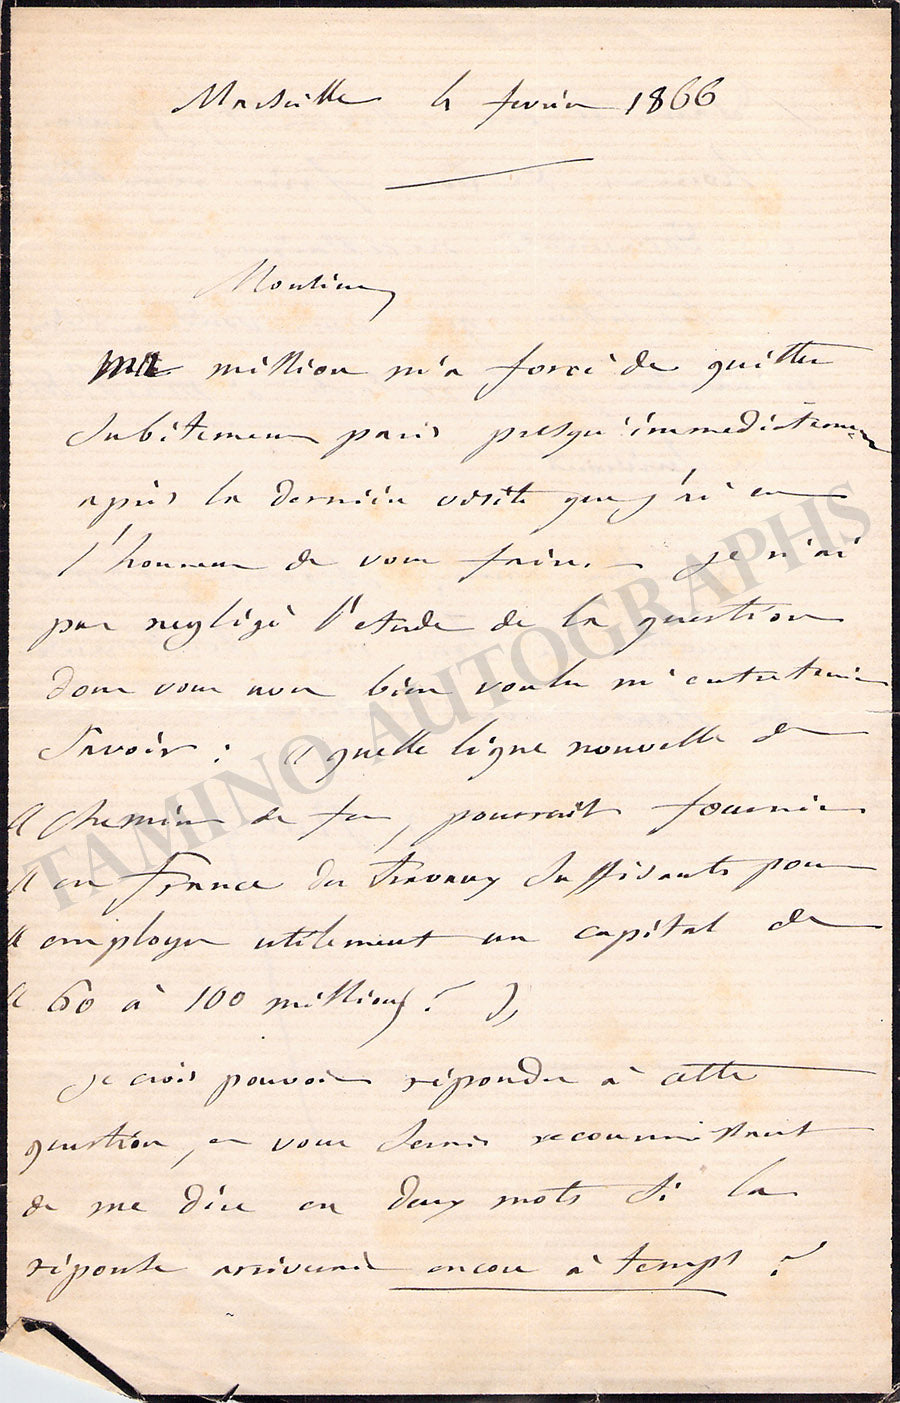 Marseille 4 fevrier 1866
Monsieur,
Ma mission m'a forcé de quitter
subitement paris presqu'immediatement
après la dernière visite que j'ai eu
l'honneur de vous faire. — je n'ai
pas negligé l'etude de la question
dont vous avez bien voulu m'entretenir
Savoir : « quelle ligne nouvelle de
« chemin de fer, pourrait fournir
« en France des travaux suffisants pour
« employer utilement un capital de
« 60 à 100 millions ? »,
je crois pouvoir répondre à cette
question, et vous serais reconnaissant
de me dire en deux mots si la
réponse arriverait encore à temps ?
TAMINO AUTOGRAPHS